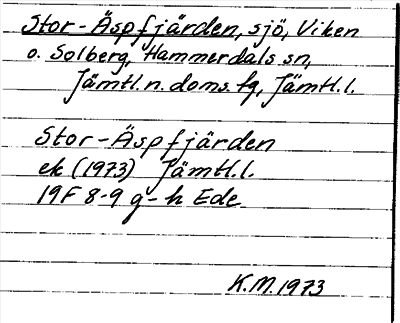 Stor-Äspfjärden, sjö, Viken
o. Solberg, Hammerdals sn,
Jämtl. n. doms. fg, Jämtl. l.
Stor-Äspfjärden
ek (1973) Jämtl. l.
19F 8-9 g-h Ede
K.M. 1973